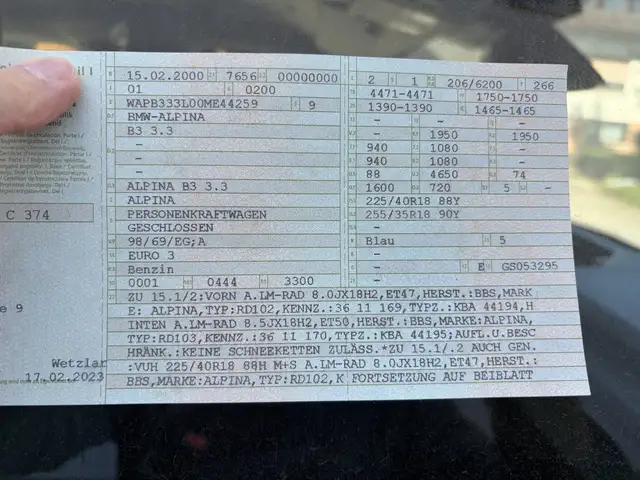 15.02.2000 7656 00000000 2 1 206/6200 266
01 0200 4471-4471 1750-1750
WAPB333L00ME44259 9 1390-1390 1465-1465
BMW-ALPINA - -
B3 3.3 - 1950 1950
- 940 1080 -
- 940 1080 -
- 88 4650 74
ALPINA B3 3.3 1600 720 5 -
ALPINA 225/40R18 88Y
PERSONENKRAFTWAGEN 255/35R18 90Y
GESCHLOSSEN -
98/69/EG;A Blau 5
EURO 3 -
Benzin - E GS053295
0001 0444 3300 -
C 374
e 9
Wetzlar
17.02.2023
ZU 15.1/2:VORN A.LM-RAD 8.0JX18H2,ET47,HERST.:BBS,MARK
E: ALPINA,TYP:RD102,KENNZ.:36 11 169,TYPZ.:KBA 44194,H
INTEN A.LM-RAD 8.5JX18H2,ET50,HERST.:BBS,MARKE:ALPINA,
TYP:RD103,KENNZ.:36 11 170,TYPZ.:KBA 44195;AUFL.U.BESC
HRÄNK.:KEINE SCHNEEKETTEN ZULÄSS.*ZU 15.1/.2 AUCH GEN.
:VUH 225/40R18 88H M+S A.LM-RAD 8.0JX18H2,ET47,HERST.:
BBS,MARKE:ALPINA,TYP:RD102,K FORTSETZUNG AUF BEIBLATT